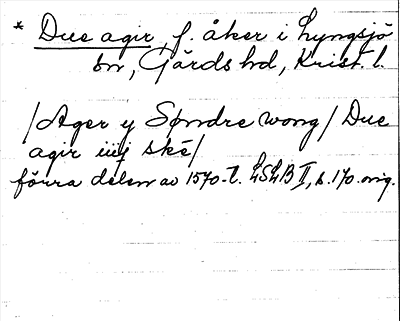 * Due agir, f. åker i Lyngsjö
sn, Gärds hd, Krist. l.
/Ager y Søndre wong/ Due
agir iiij ske/
förra delen av 1570-t. LSLB II, s. 170. orig.